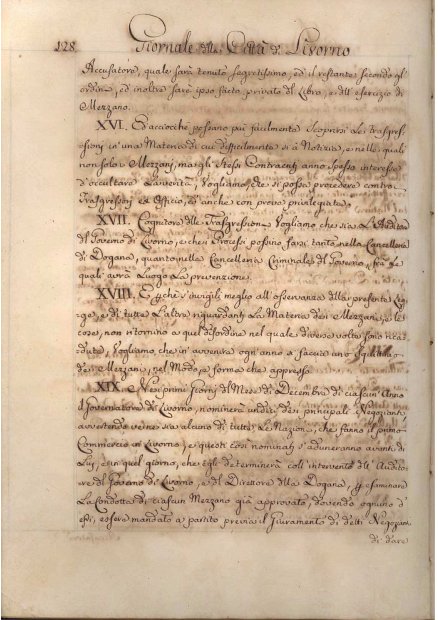 128 Giornale della Città di Livorno
Accusatore, quale sarà tenuto segretissimo, ed il restante secondo gl'
ordini, ed inoltre sarà ipso facto privato del Libro, e dell'esercizio di
Mezzano.
XVI. Ed acciocchè possano più facilmente scoprirsi le trasgres-
sioni in una Materia di cui difficilmente si à Notizia, e nella quale
non solo i Mezzani, ma gli stessi Contraenti anno spesso interesse
d'occultare la verità, Vogliamo, che si possa procedere contro i
Trasgressori ex Officio, ed anche con prove privilegiate.
XVII. Cognitore delle Trasgressioni Vogliamo che sia l'Auditore
del Governo di Livorno, e che i Processi possino farsi tanto nella Cancelleria
di Dogana, quanto nella Cancelleria Criminale del Governo, frà le
quali avrà luogo la prevenzione.
XVIII. E perchè si vigili meglio all'osservanza della presente Leg-
ge, e di tutte l'altre riguardanti la Materia dei Mezzani, e le
cose, non ritornino a quel disordine nel quale diverse volte sono ricad-
dute, Vogliamo, che in avvenire ogn'anno si faccia uno Squittinio
dei Mezzani, nel Modo, e forma che appresso
XIX. Nei primi Giorni del Mese di Decembre di ciascun Anno
il Governatore di Livorno, nominerà undici dei principali Negozianti
avvertendo velne sia alcuno di tutte le Nazioni, che fanno il primo
Commercio in Livorno, e questi così nominati s'aduneranno avanti di
Lui, in quel giorno, che egli determinerà coll'intervento dell'Audito-
re del Governo di Livorno, e del Direttore della Dogana, per esaminare
la Condotta di ciascun Mezzano già approvato, dovendo ognuno d'
essi, essere mandato a partito previo il Giuramento di detti Negozianti
di dare